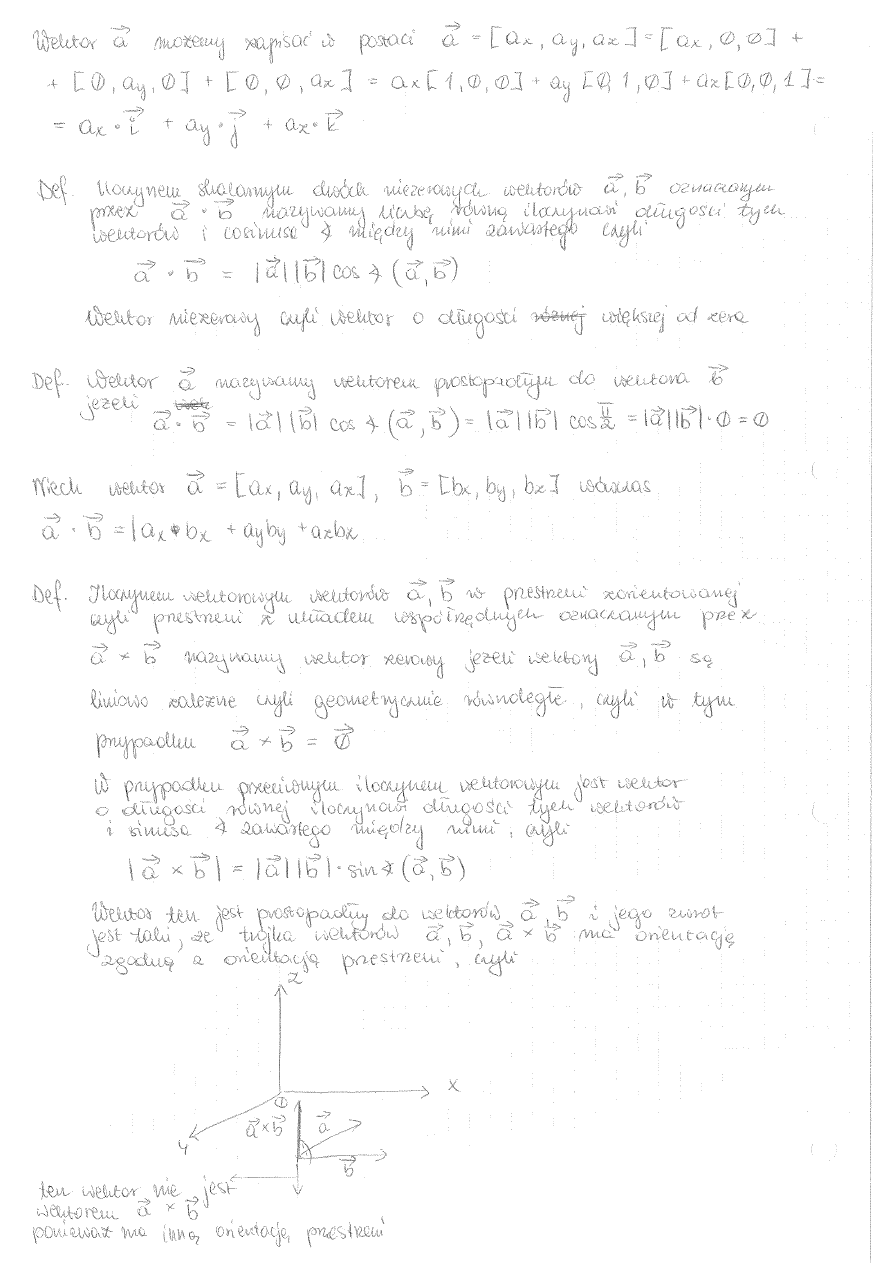 Wektor a⃗ możemy zapisać w postaci a⃗ = [ax, ay, az] = [ax, 0, 0] +
+ [0, ay, 0] + [0, 0, az] = ax[1, 0, 0] + ay[0, 1, 0] + az[0, 0, 1] =
= ax · i⃗ + ay · j⃗ + az · k⃗
Def. Iloczynem skalarnym dwóch niezerowych wektorów a⃗, b⃗ oznaczanym
przez a⃗ · b⃗ nazywamy liczbę równą iloczynowi długości tych
wektorów i cosinusa ∢ między nimi zawartego czyli
a⃗ · b⃗ = |a⃗||b⃗| cos ∢ (a⃗, b⃗)
Wektor niezerowy czyli wektor o długości różnej większej od zera
Def. Wektor a⃗ nazywamy wektorem prostopadłym do wektora b⃗
jeżeli
a⃗ · b⃗ = |a⃗||b⃗| cos ∢ (a⃗, b⃗) = |a⃗||b⃗| cos π/2 = |a⃗||b⃗| · 0 = 0
Niech wektor a⃗ = [ax, ay, az], b⃗ = [bx, by, bz] wówczas
a⃗ · b⃗ = |ax · bx + ayby + azbz
Def. Iloczynem wektorowym wektorów a⃗, b⃗ w przestrzeni zorientowanej
czyli przestrzeni z układem współrzędnych oznaczanym przez
a⃗ × b⃗ nazywamy wektor zerowy jeżeli wektory a⃗, b⃗ są
liniowo zależne czyli geometrycznie równoległe, czyli w tym
przypadku a⃗ × b⃗ = 0⃗
W przypadku przeciwnym iloczynem wektorowym jest wektor
o długości równej iloczynowi długości tych wektorów
i sinusa ∢ zawartego między nimi, czyli
|a⃗ × b⃗| = |a⃗||b⃗| · sin ∢ (a⃗, b⃗)
Wektor ten jest prostopadły do wektorów a⃗, b⃗ i jego zwrot
jest taki, że trójka wektorów a⃗, b⃗, a⃗ × b⃗ ma orientację
zgodną z orientacją przestrzeni, czyli
Z
X
0
a⃗×b⃗ a⃗
Y
b⃗
ten wektor nie jest
wektorem a⃗ × b⃗
ponieważ ma inną orientację przestrzeni